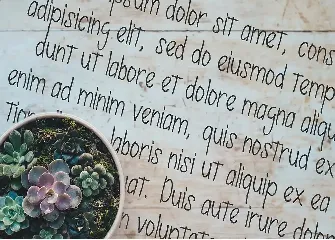 ipsum dolor sit amet, cons
adipisicing elit, sed do eiusmod temp
dunt ut labore et dolore magna aliqu
enim ad minim veniam, quis nostrud ex
laboris nisi ut aliquip ex ea
at. Duis aute irure dolor
voluptate